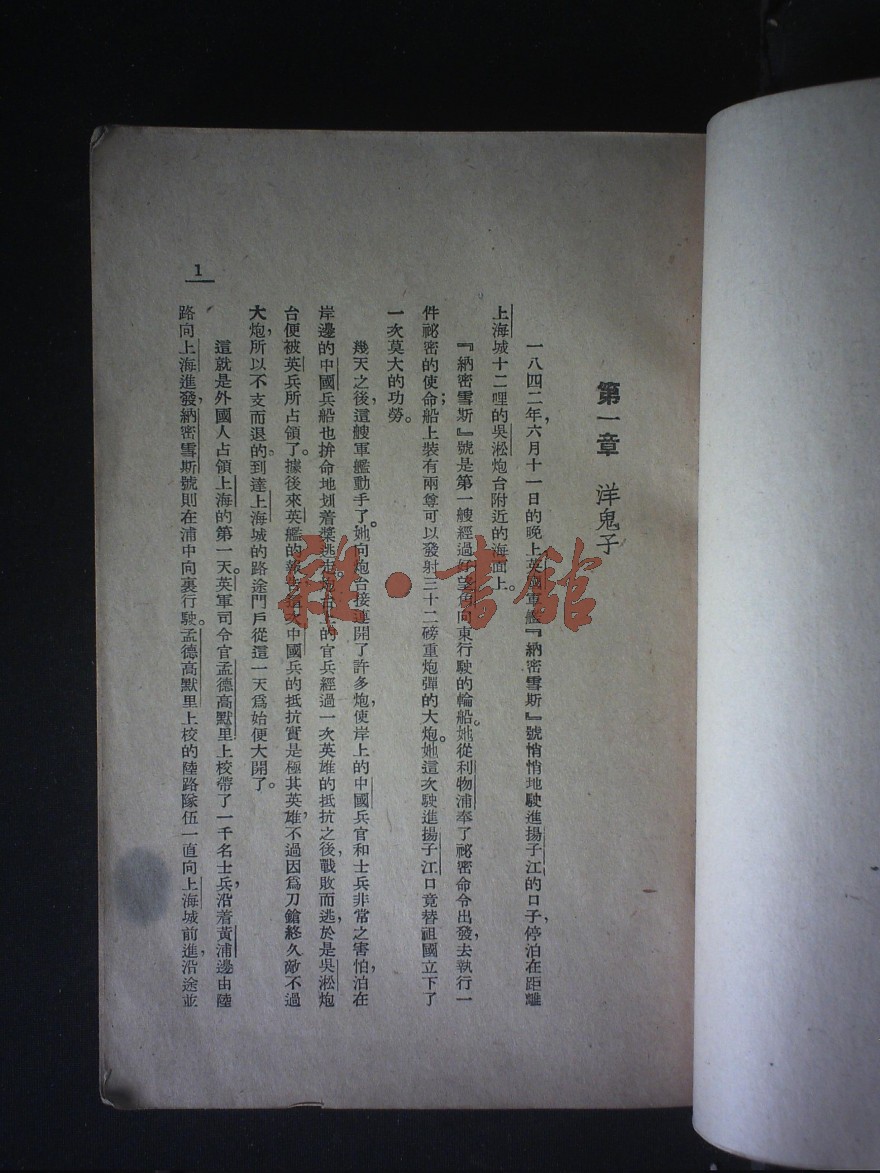 第一章 洋鬼子
一八四二年,六月十一日的晚上,英國軍艦『納密雪斯』號悄悄地駛進揚子江的口子,停泊在距離
上海城十二哩的吳淞炮台附近的海面上。
『納密雪斯』號是第一艘經過好望角向東行駛的輪船。她從利物浦奉了祕密命令出發,去執行一
件祕密的使命;船上裝有兩尊可以發射三十二磅重炮彈的大炮。她這次駛進揚子江口竟替祖國立下了
一次莫大的功勞。
幾天之後,這艘軍艦動手了。她向炮台接連開了許多炮,使岸上的中國兵官和士兵非常之害怕,泊在
岸邊的中國兵船也拚命地划着槳逃走。炮台上的官兵經過一次英雄的抵抗之後,戰敗而逃,於是吳淞炮
台便被英兵所占領了。據後來英艦的報告,這次中國兵的抵抗實是極其英雄,不過因爲刀鎗終久敵不過
大炮,所以不支而退的。到達上海城的路途門戶從這一天爲始便大開了。
這就是外國人占領上海的第一天。英軍司令官孟德高默里上校帶了一千名士兵,沿着黃浦邊由陸
路向上海進發,納密雪斯號則在浦中向裏行駛。孟德高默里上校的陸路隊伍一直向上海城前進,沿途並
1
雜·書館